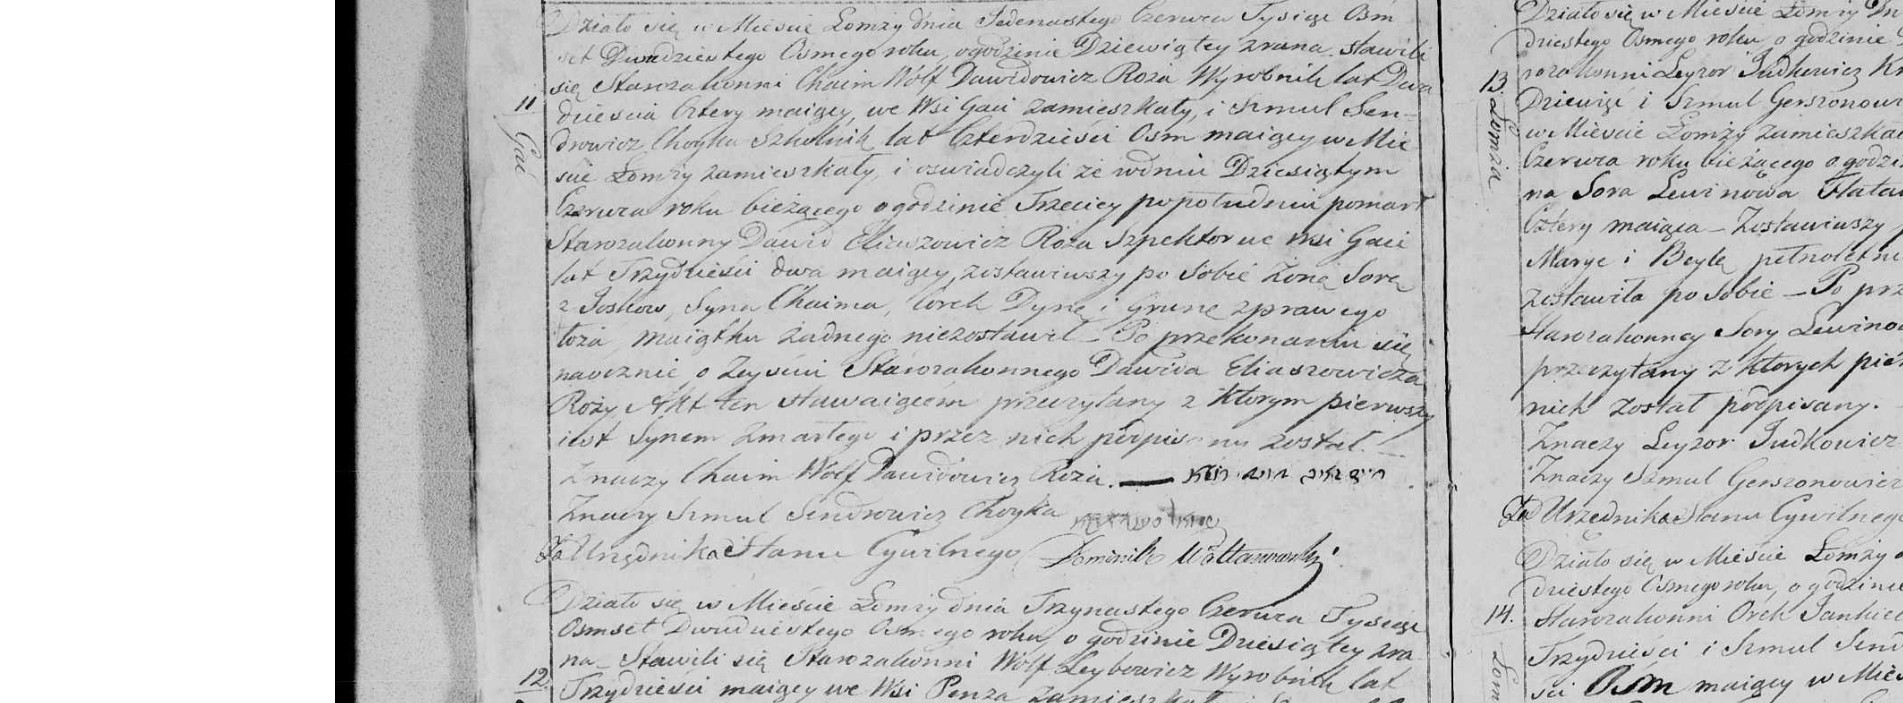 Działo się w Mieście Łomży dnia Jedenastego Czerwca Tysiąc Osm
set Dwudziestego Osmego roku, o godzinie Dziewiątey zrana stawili
się Starozakonni Chaim Wolf Dawidowicz Roża Wyrobnik lat Dwa
11 dzieścia Cztery maiący, we Wsi Gaci zamieszkały, i Szmul Sen-
Gać
drowicz Choyka Szkolnik lat Czterdzieści Osm maiący w Mie
ście Łomży zamieszkały, i oświadczyli że w dniu Dziesiątym
Czerwca roku bieżącego o godzinie Trzeciey popołudniu pomarł
Starozakonny Dawid Eliaszowicz Roża Szpektor we Wsi Gaci
lat Trzydzieści dwa maiący, zostawiwszy po sobie Żonę Sorę
z Josków, Syna Chaima, Córek Dynę i Grunę z prawego
łoża, maiątku żadnego niezostawił – Po przekonaniu się
naocznie o Zeyściu Starozakonnego Dawida Eliaszowicza
Roży Akt ten stawaiącem przeczytany z którym pierwszy
iest Synem Zmarłego i przez nich podpisany został. –
Znaczy Chaim Wolf Dawidowicz Roża. —
Znaczy Szmul Sendrowicz Choyka
Za Urzędnika Stanu Cywilnego Dominik
Działo się w Mieście Łomży dnia Trzynastego Czerwca Tysiąc
Osmset Dwudziestego Osmego roku, o godzinie Dziesiątey zra
na – Stawili się Starozakonni Wolf Leybowicz Wyrobnik lat
12 Trzydzieści maiący we Wsi Penza zamieszkały i
Działo się w Mieście Łomży
dziestego Osmego roku o godzinie
rozakonni Leyzor Judkowicz
13. Dziewięć i Szmul Gerszonowi
Łomża
w Mieście Łomży zamieszkał
Czerwca roku bieżącego o godzi
na Sora Lewinowa
Cztery maiąca – Zostawiwszy
Maryę i Beylę pełnoletni
zostawiła po sobie – Po prz
Starozakonney Sory Lewino
przeczytany z których pier
nich został podpisany.
Znaczy Leyzor Judkowicz
Znaczy Szmul Gerszonowicz
Za Urzędnika Stanu Cywilnego
Działo się w Mieście Łomży
dziestego Osmego roku, o godzinie
14. Starozakonni
Łom
Trzydzieści i Szmul Send
ści Osm maiący w Mieś